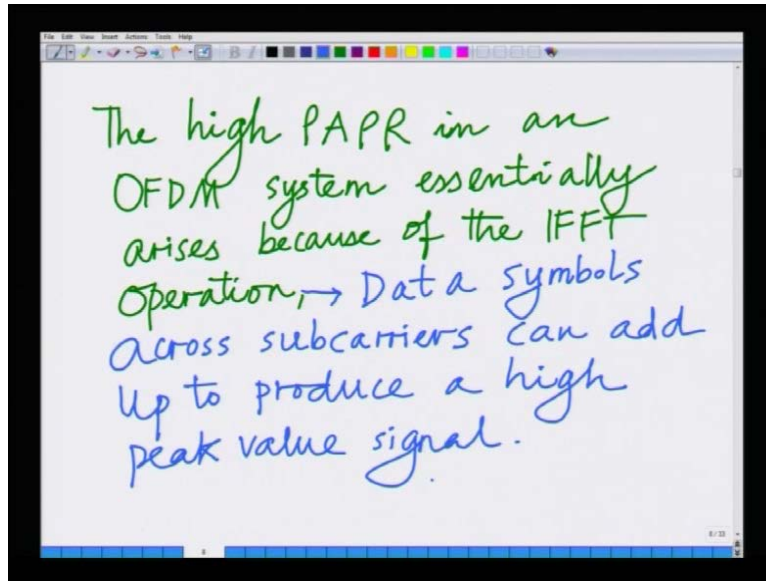 File Edit View Insert Actions Tools Help
The high PAPR in an
OFDM system essentially
arises because of the IFFT
operation, → Data symbols
across subcarriers can add
up to produce a high
peak value signal.
8/33
8